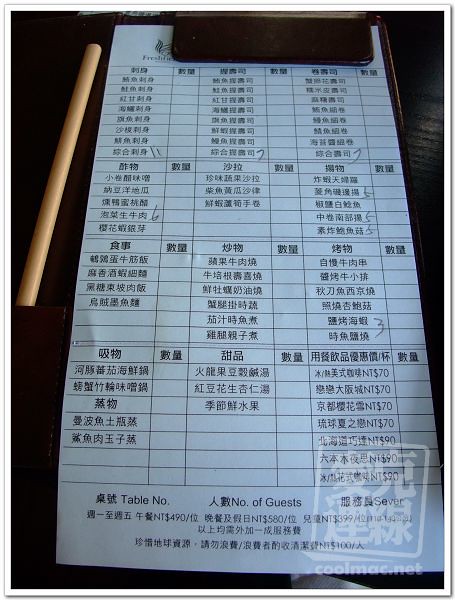 刺身 數量 握壽司 數量 卷壽司 數量
鮪魚刺身 鮪魚握壽司 蟹卵花壽司
鮭魚刺身 鮭魚握壽司 糯米皮壽司
紅甘刺身 紅甘握壽司 麻糬壽司
海鱺刺身 海鱺握壽司 鮪魚細卷
旗魚刺身 旗魚握壽司 鰻魚細卷
沙梭刺身 鮮蝦握壽司 鯖魚細卷
鯖魚刺身 鰻魚握壽司 海苔醬細卷
綜合刺身 11 綜合握壽司 7 綜合壽司 7
酢物 數量 沙拉 數量 揚物 數量
小卷醋味噌 珍味蔬果沙拉 炸蝦天婦羅
納豆洋地瓜 柴魚黃瓜沙律 菱角磯邊揚 5
燻鴨蜜桃醋 鮮蝦蘆筍手卷 椒鹽白鯰魚
泡菜生牛肉 6 中卷南部揚 5
櫻花蝦銀芽 素炸鮑魚菇 5
食事 數量 炒物 數量 烤物 數量
鵪鶉蛋牛筋飯 蘋果牛肉燒 自慢牛肉串
麻香酒蝦細麵 牛培根壽喜燒 醬烤牛小排
黑糖東坡肉飯 鮮牡蠣奶油燒 秋刀魚西京燒
烏賊墨魚麵 蟹腿掛時蔬 照燒杏鮑菇
茄汁時魚煮 鹽烤海蝦 3
雞腿親子煮 時魚鹽燒
吸物 數量 甜品 數量 用餐飲品優惠價/杯
河豚蕃茄海鮮鍋 火龍果豆穀鹹湯 冰/熱美式咖啡NT$70
螃蟹竹輪味噌鍋 紅豆花生杏仁湯 戀戀大阪城NT$70
蒸物 季節鮮水果 京都櫻花雪NT$70
曼波魚土瓶蒸 琉球夏之戀NT$70
鯊魚肉玉子蒸 北海道巧達NT$90
六本木夜思NT$90
冰/熱花式咖啡NT$90
桌號 Table No. 人數No. of Guests 服務員Sever
週一至週五 午餐NT$490/位 晚餐及假日NT$580/位 兒童NT$399/位
以上均需外加一成服務費
珍惜地球資源，請勿浪費/浪費者酌收清潔費NT$100/人
coolmac.net